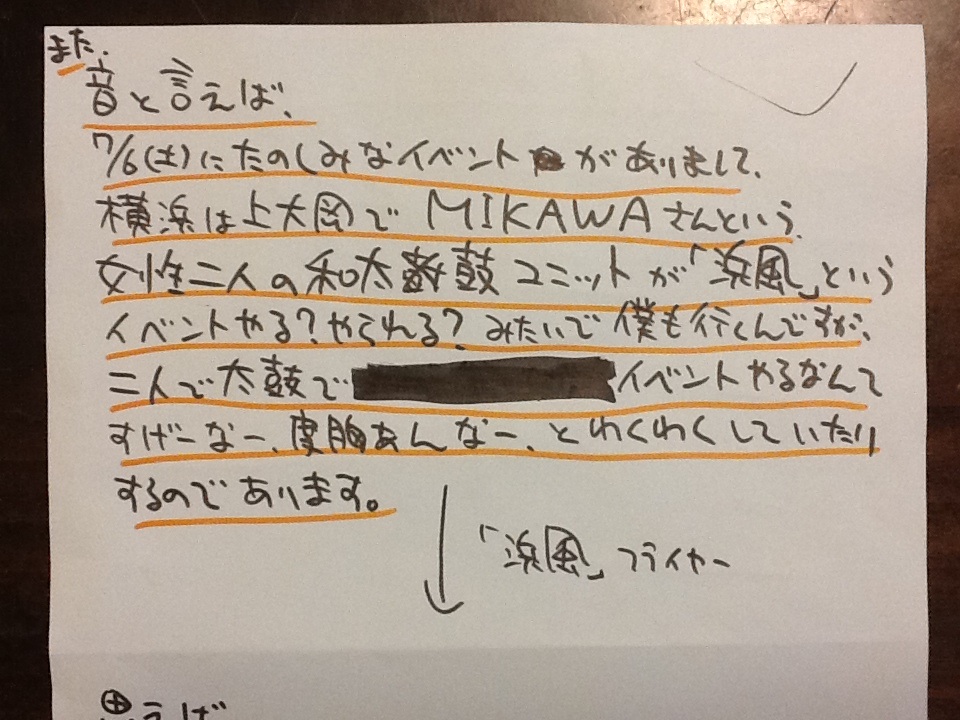 また、
音と言えば、
7/6(土)にたのしみなイベントがありまして、
横浜は上大岡でMIKAWAさんという、
女性二人の和太鼓ユニットが「浜風」という
イベントやる?やられる?みたいで僕も行くんですが、
二人で太鼓でイベントやるなんて
すげーなー、度胸あんなー、とわくわくしていたり
するのであります。
「浜風」フライヤー
思えば